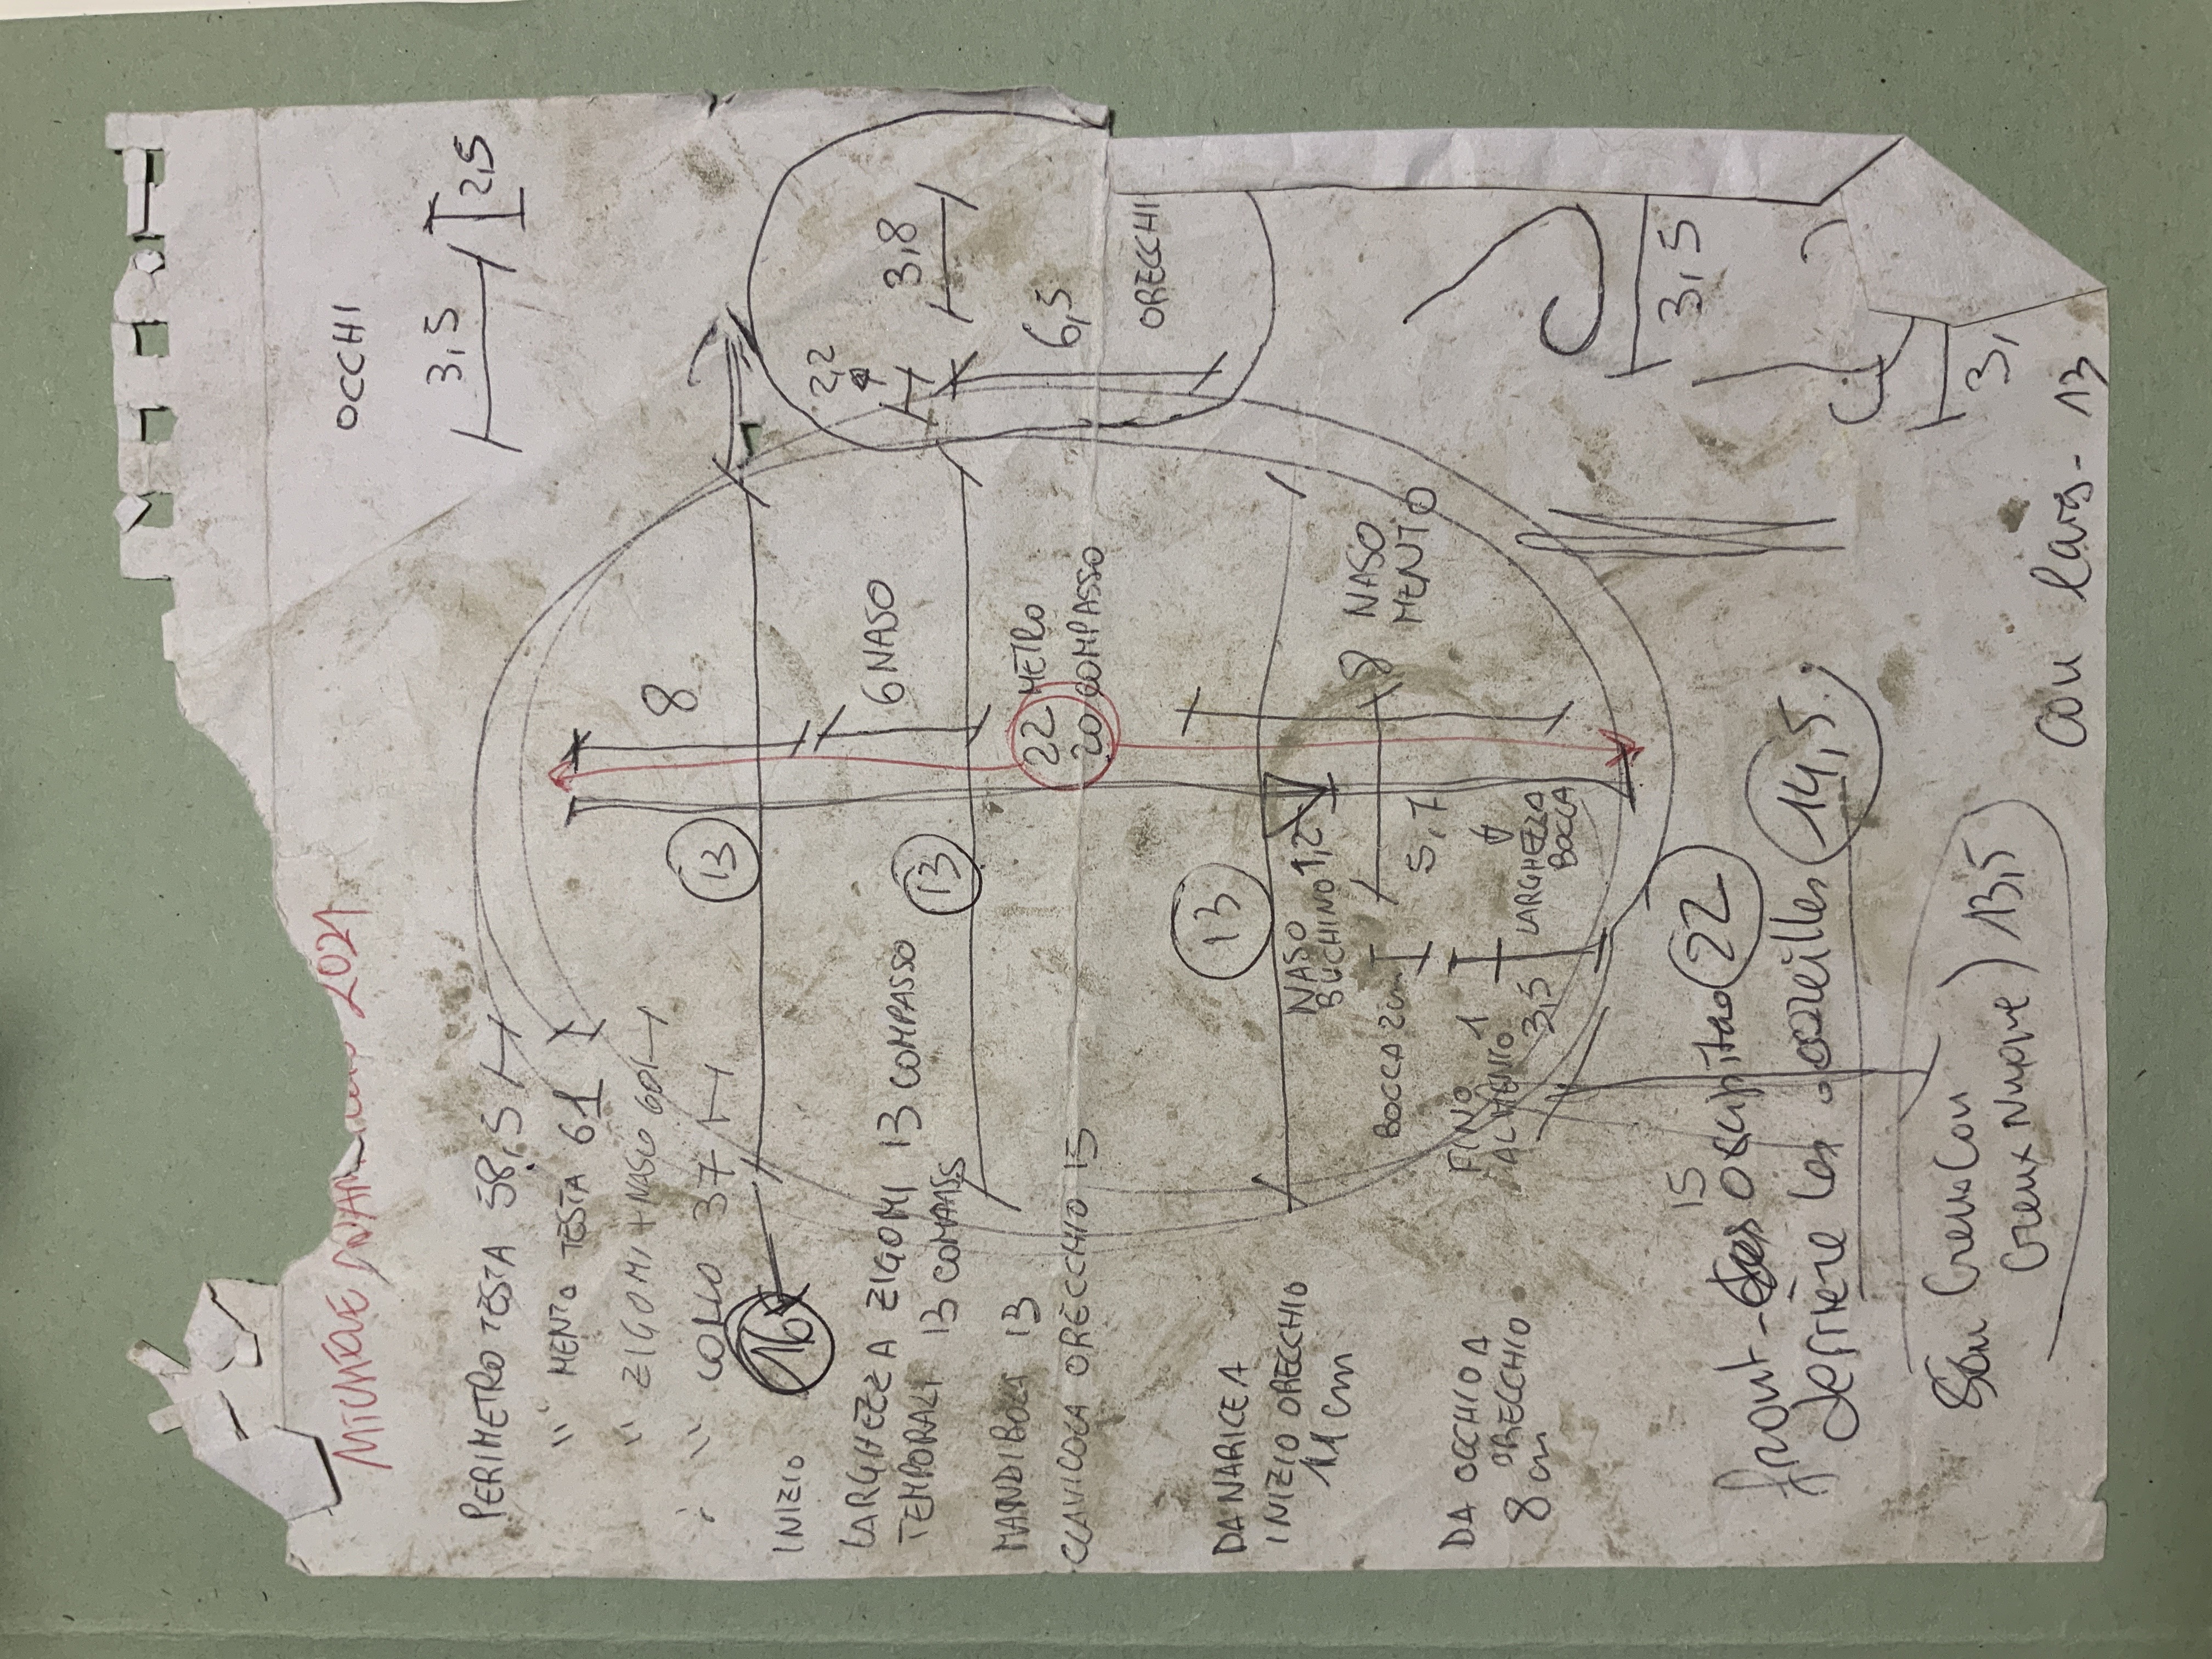 2021
OCCHI
3,5
2,5
PERIMETRO TESTA 58,5
" MENTO TESTA 61
" ZIGOMI + NASO 60
" COLLO 37
INIZIO 16
8
13
LARGHEZZA ZIGOMI 13 COMPASSO
TEMPORALI 13 COMPASS
6 NASO
13
2,2
3,8
6,5
ORECCHI
MANDIBOLA 13
CLAVICOLA ORECCHIO 15
22 METRO
20 COMPASSO
DA NARICE A
INIZIO ORECCHIO
11 cm
13
NASO
BUCHINO 1,2
8 NASO
MENTO
BOCCA 2cm
5,7
LARGHEZZA
BOCCA
FINO 1
AL MENTO 3,5
DA OCCHIO A
ORECCHIO
8 cm
3,5
3,
15
front - occipitao 22
derrière les oreilles 14,5
Creux Nuque ) 13,5
cou larg - 13